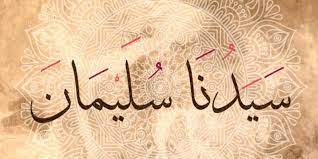 سَيِّدُنَا سُلَيْمَانَ